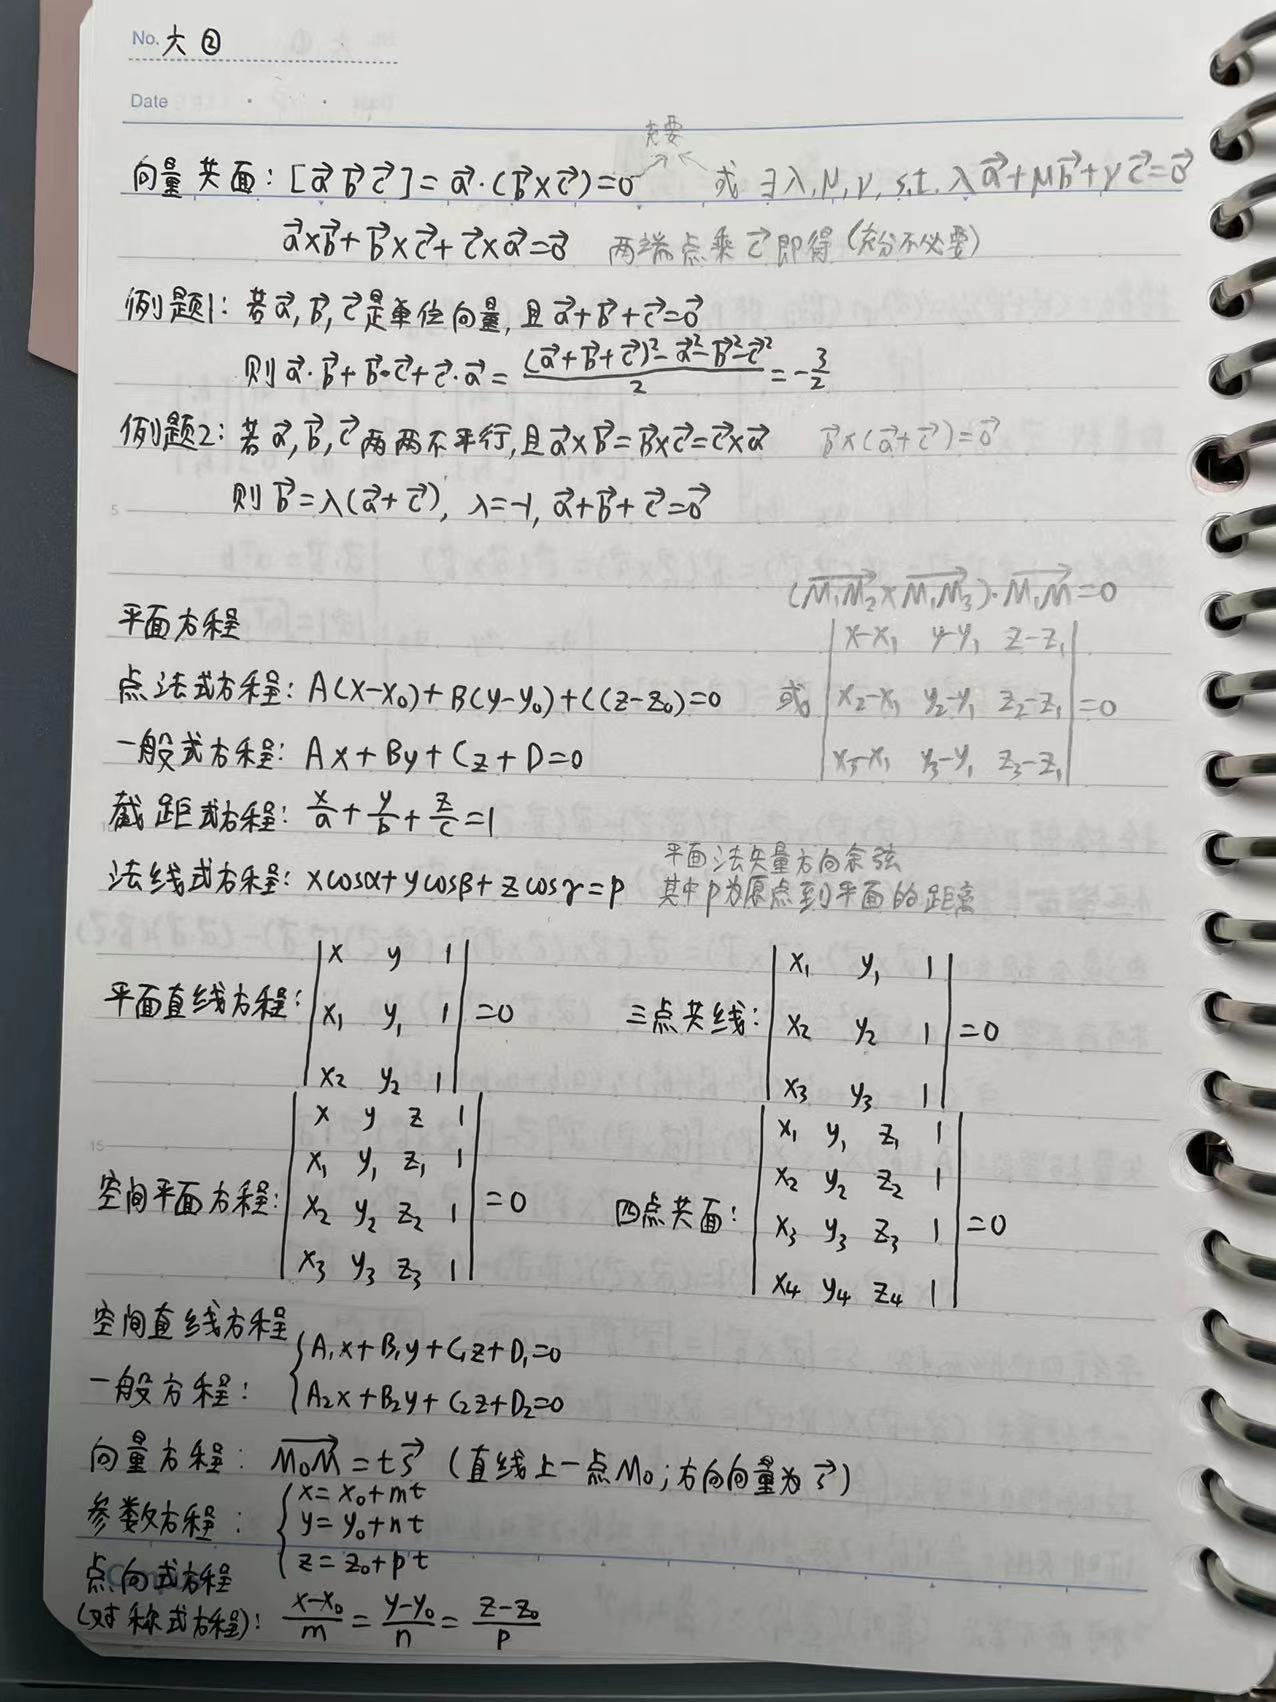 No. 六 ②
Date
充要
向量共面: [a⃗ b⃗ c⃗] = a⃗·(b⃗×c⃗)=0 或 ∃λ,μ,ν, s.t. λa⃗+μb⃗+νc⃗=0⃗
a⃗×b⃗+b⃗×c⃗+c⃗×a⃗=0⃗ 两端点乘c⃗即得(充分不必要)
例题1: 若a⃗,b⃗,c⃗是单位向量,且a⃗+b⃗+c⃗=0⃗
则a⃗·b⃗+b⃗·c⃗+c⃗·a⃗= ((a⃗+b⃗+c⃗)²-a⃗²-b⃗²-c⃗²)/2 = -3/2
例题2: 若a⃗,b⃗,c⃗两两不平行,且a⃗×b⃗=b⃗×c⃗=c⃗×a⃗ b⃗×(a⃗+c⃗)=0⃗
则b⃗=λ(a⃗+c⃗), λ=-1, a⃗+b⃗+c⃗=0⃗
5
(M₁M₂×M₁M₃)·M₁M=0
平面方程
点法式方程: A(x-x₀)+B(y-y₀)+C(z-z₀)=0 或
| x-x₁ y-y₁ z-z₁ |
| x₂-x₁ y₂-y₁ z₂-z₁ | =0
| x₃-x₁ y₃-y₁ z₃-z₁ |
一般式方程: Ax+By+Cz+D=0
截距式方程: x/a + y/b + z/c =1
平面法矢量方向余弦
法线式方程: xcosα+ycosβ+zcosγ=p 其中p为原点到平面的距离
平面直线方程:
| x y 1 |
| x₁ y₁ 1 | =0
| x₂ y₂ 1 |
三点共线:
| x₁ y₁ 1 |
| x₂ y₂ 1 | =0
| x₃ y₃ 1 |
15
空间平面方程:
| x y z 1 |
| x₁ y₁ z₁ 1 |
| x₂ y₂ z₂ 1 | =0
| x₃ y₃ z₃ 1 |
四点共面:
| x₁ y₁ z₁ 1 |
| x₂ y₂ z₂ 1 |
| x₃ y₃ z₃ 1 | =0
| x₄ y₄ z₄ 1 |
空间直线方程
一般方程: { A₁x+B₁y+C₁z+D₁=0
A₂x+B₂y+C₂z+D₂=0
向量方程: M₀M = ts⃗ (直线上一点M₀;方向向量为s⃗)
参数方程: { x=x₀+mt
y=y₀+nt
z=z₀+pt
点向式方程
(对称式方程): (x-x₀)/m = (y-y₀)/n = (z-z₀)/p